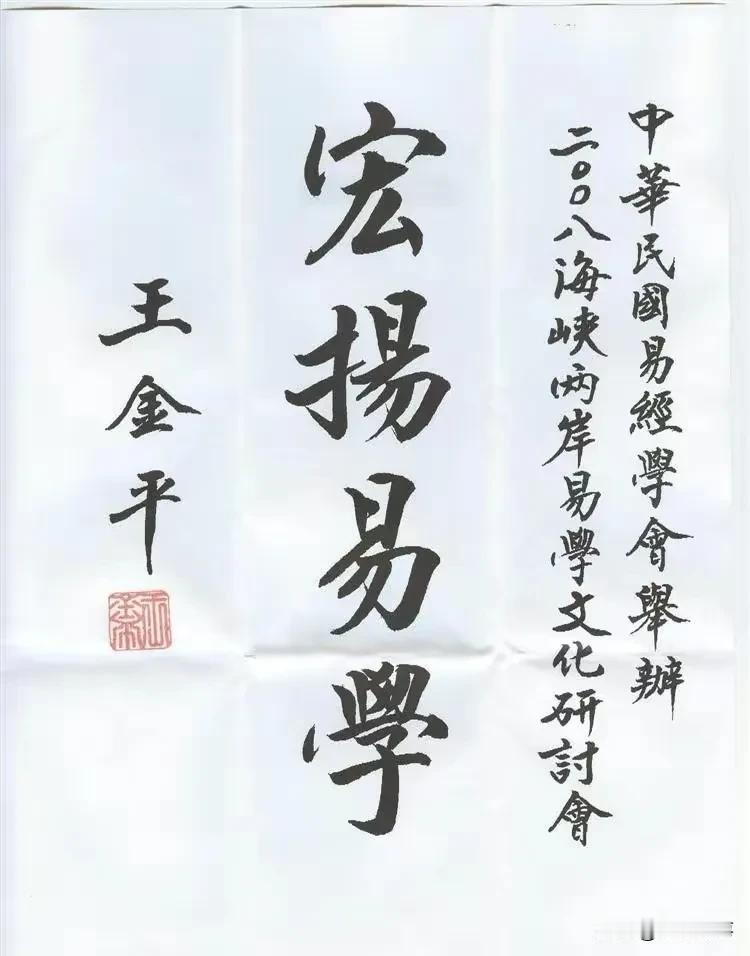 中華民國易經學會舉辦
二００八海峽兩岸易學文化研討會
宏揚易學
王金平